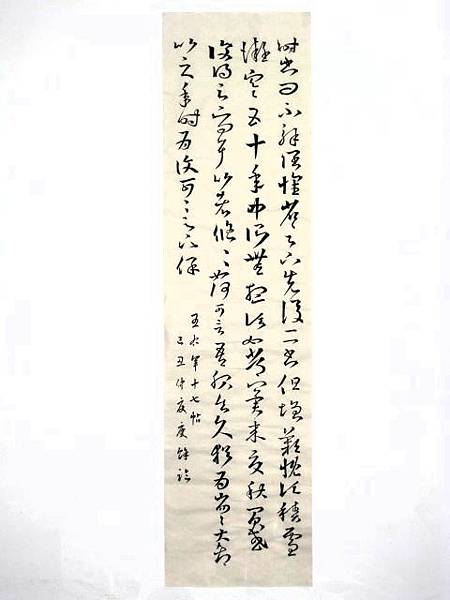 時書問不解闊懷省足下先後二書但增歎慨頃積雪
凝寒五十年中所無想頃如常冀來夏秋間或
復得足下問耳比者悠悠如何可言吾服食久猶為劣劣大都
比之年時為復可可足下保
王右軍十七帖
己丑仲夏庚 臨